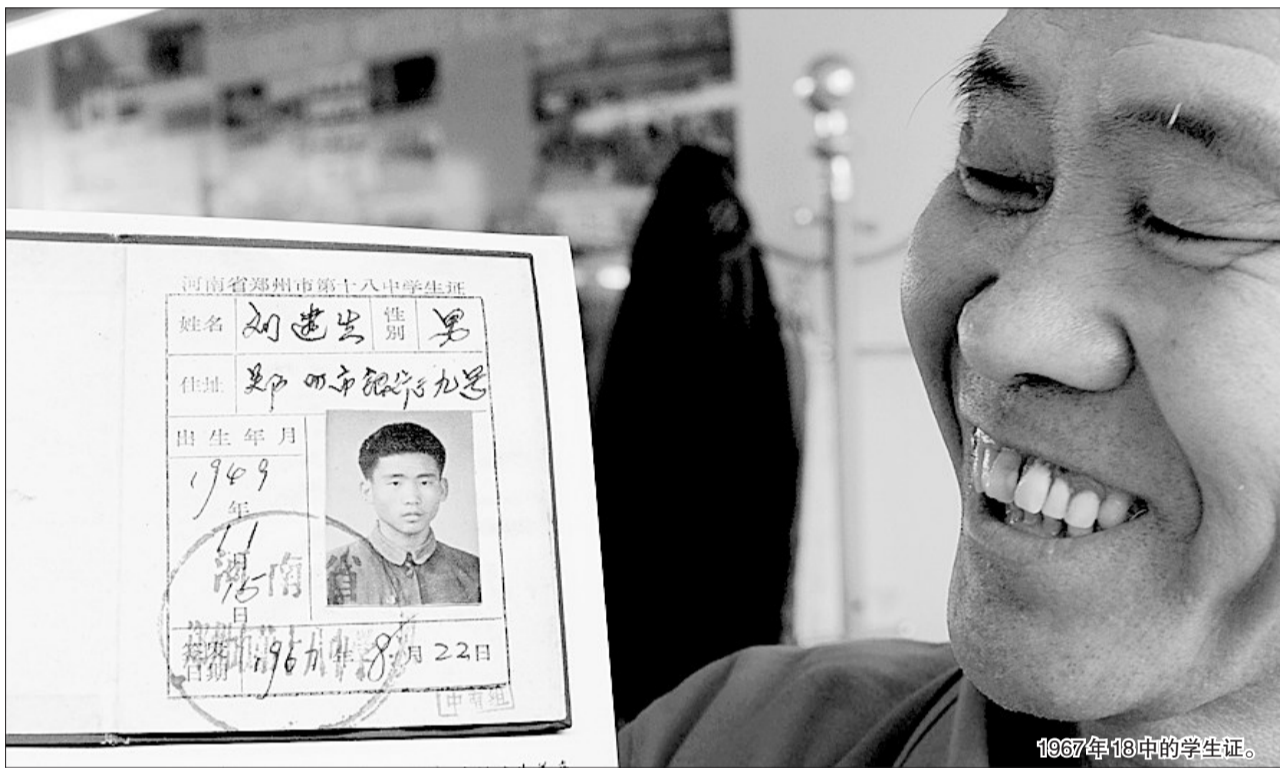 河南省郑州市第十八中学生证
姓名 刘建生 性别 男
住址 郑州市银行街九号
出生年月
1949
年
11
月
15
日
河南省
签发日期 1967年8月22日
1967年18中的学生证。